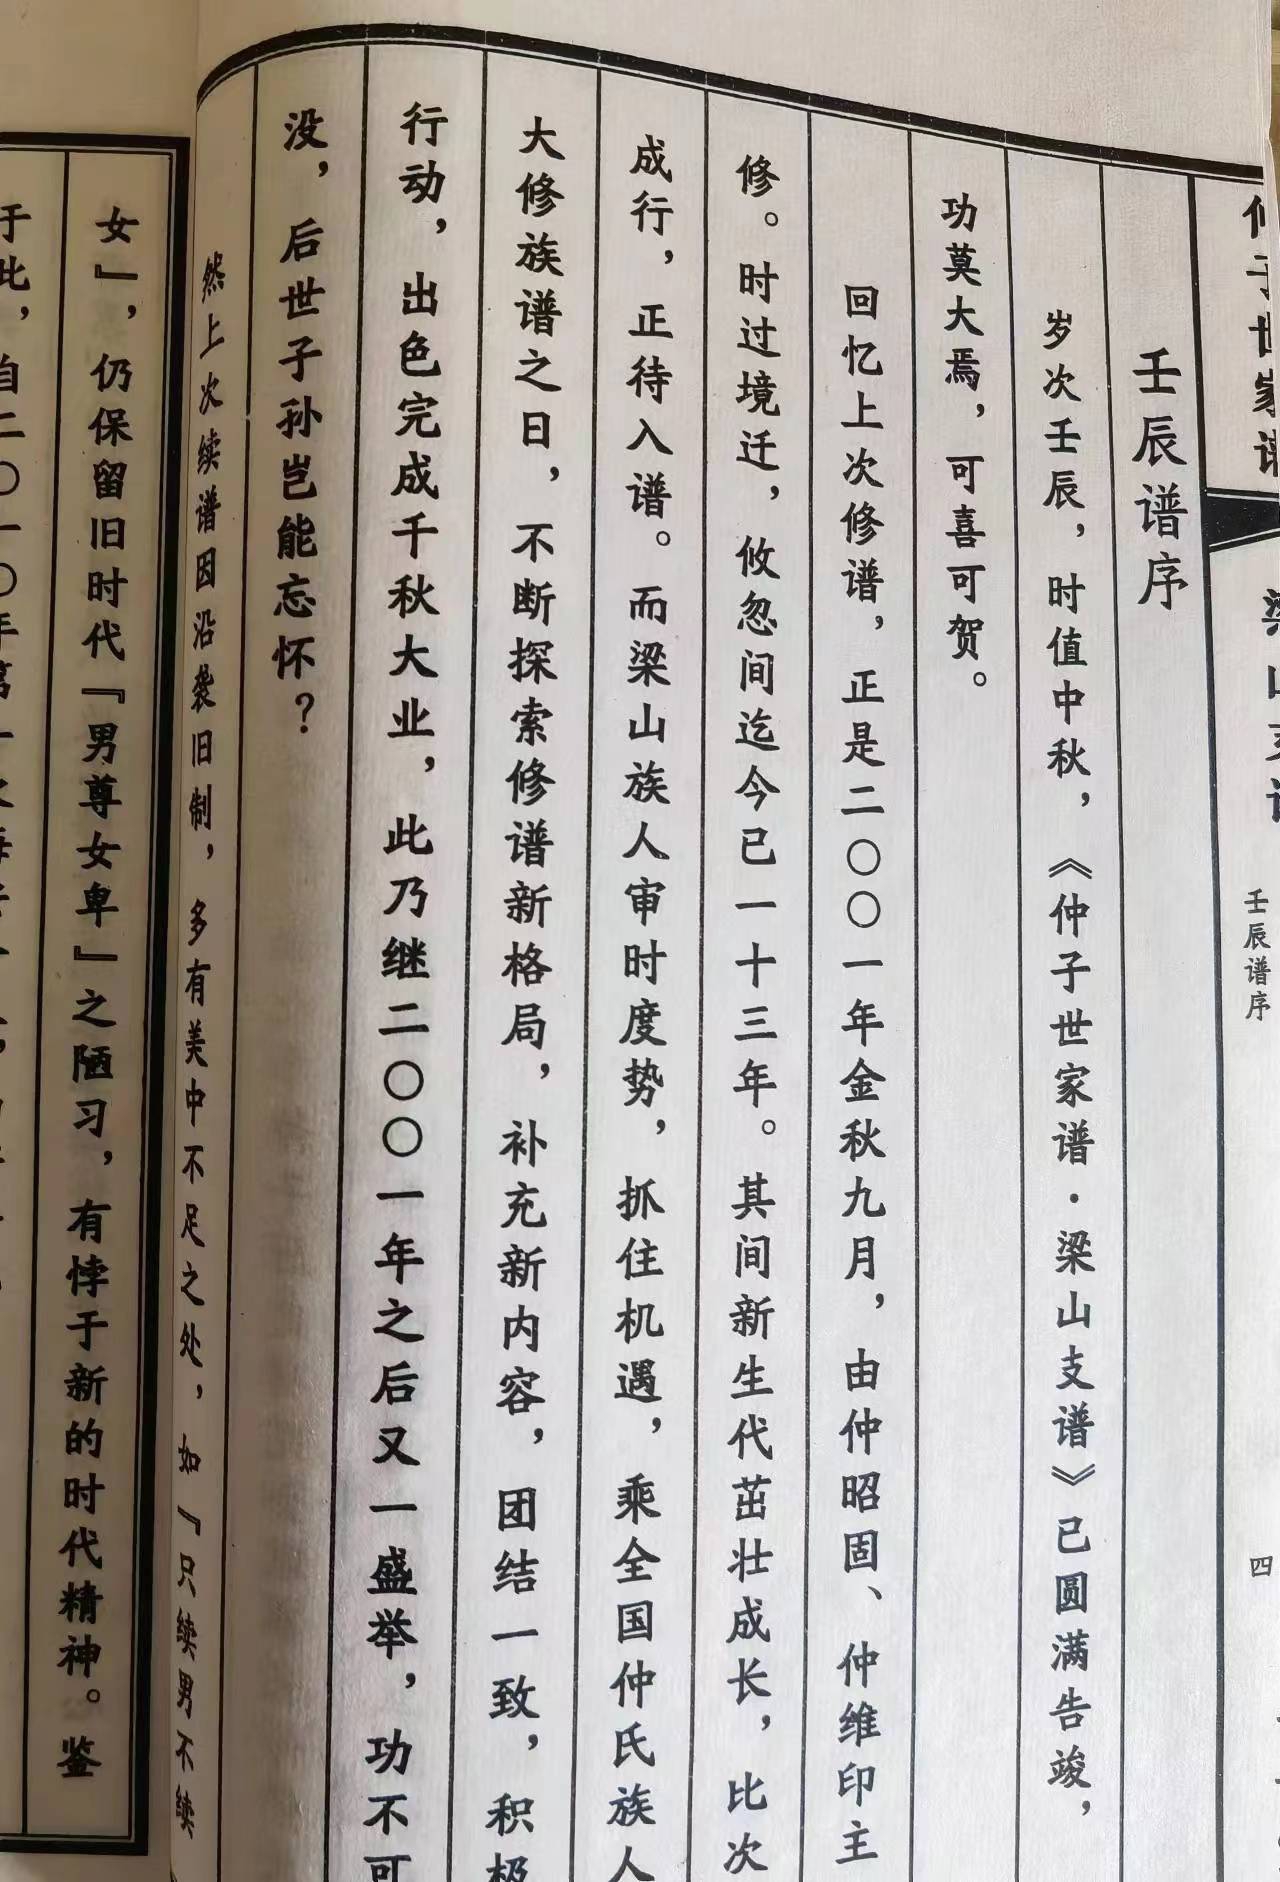 仲子世家谱
梁山支谱
壬辰谱序
四
壬辰谱序
岁次壬辰，时值中秋，《仲子世家谱·梁山支谱》已圆满告竣，
功莫大焉，可喜可贺。
回忆上次修谱，正是二〇〇一年金秋九月，由仲昭固、仲维印主
修。时过境迁，攸忽间迄今已一十三年。其间新生代茁壮成长，比次
成行，正待入谱。而梁山族人审时度势，抓住机遇，乘全国仲氏族人
大修族谱之日，不断探索修谱新格局，补充新内容，团结一致，积极
行动，出色完成千秋大业，此乃继二〇〇一年之后又一盛举，功不可
没，后世子孙岂能忘怀？
然上次续谱因沿袭旧制，多有美中不足之处，如『只续男不续
女』，仍保留旧时代『男尊女卑』之陋习，有悖于新的时代精神。鉴
于此，自二〇一〇年第一次